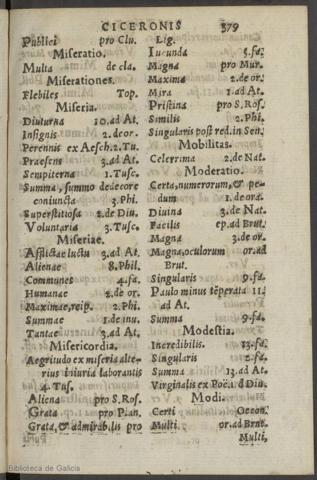 CICERONIS 379
Publici pro Clu.
Miseratio.
Multa de cla.
Miserationes.
Flebiles Top.
Miseria.
Diuturna 10.ad At.
Insignis 2.de or.
Perennis ex Aesch.2.Tu.
Praesens 3.ad At.
Sempiterna 1.Tusc.
Summa, summo dedecore
coniuncta 3.Phi.
Superstitiosa 2.de Diu.
Voluntaria 3.Tusc.
Miseriae.
Afflictae luctu 3.ad At.
Alienae 8.Phil.
Communes 4.fa.
Humanae 2.de or.
Maximae, reip. 2.Phi.
Summae 1.de inu.
Tantae 3.ad At.
Misericordia.
Aegritudo ex miseria alte-
rius iniuria laborantis
4.Tus.
Aliena pro S.Ros.
Grata pro Plan.
Grata, & admirabilis pro
Lig.
Iucunda 5.fa.
Magna pro Mur.
Maxima 2.de or.
Mira 1.ad At.
Pristina pro S.Ros.
Similis 2.Phi.
Singularis post red.in Sen.
Mobilitas.
Celerrima 2.de Nat.
Moderatio.
Certa, numerorum, & pe-
dum 1.de ora.
Diuina 3.de Nat.
Facilis ep.ad Brut.
Magna 3.de or.
Magna, oculorum or.ad
Brut.
Singularis 9.fa.
Paulo minus tēperata 11.
ad At.
Summa 9.fa.
Modestia.
Incredibilis. 13.fa.
Singularis 2.fa.
Summa 13.ad At.
Virginalis ex Poë.1.d Diu.
Modi.
Certi Oecon.
Multi or.ad Brut.
Multi,
Biblioteca de Galicia